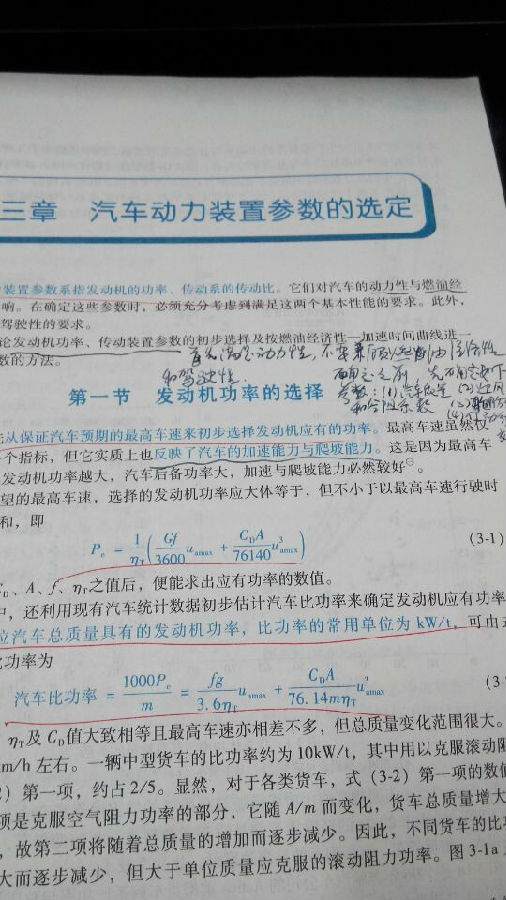 三章 汽车动力装置参数的选定
装置参数系指发动机的功率、传动系的传动比。它们对汽车的动力性与燃油经
响。在确定这些参数时，必须充分考虑到满足这两个基本性能的要求。此外，
驾驶性的要求。
论发动机功率、传动装置参数的初步选择及按燃油经济性—加速时间曲线进
数的方法。
首先满足动力性，
和驾驶性.
第一节 发动机功率的选择
从保证汽车预期的最高车速来初步选择发动机应有的功率。最高车速虽然仅
个指标，但它实质上也反映了汽车的加速能力与爬坡能力。这是因为最高车
发动机功率越大，汽车后备功率大，加速与爬坡能力必然较好。
望的最高车速，选择的发动机功率应大体等于，但不小于以最高车速行驶时
和，即
Pe = 1/ηT (Gf/3600 uamax + CDA/76140 u³amax) (3-1)
CD、A、f、ηT之值后，便能求出应有功率的数值。
中，还利用现有汽车统计数据初步估计汽车比功率来确定发动机应有功率
位汽车总质量具有的发动机功率，比功率的常用单位为 kW/t，可由
功率为
汽车比功率 = 1000Pe/m = fg/3.6ηT uamax + CDA/76.14mηT u³amax (3
ηT及 CD值大致相等且最高车速亦相差不多，但总质量变化范围很大。
m/h 左右。一辆中型货车的比功率约为 10kW/t，其中用以克服滚动阻
）第一项，约占 2/5。显然，对于各类货车，式（3-2）第一项的数值
项是克服空气阻力功率的部分，它随 A/m 而变化，货车总质量增大
，故第二项将随着总质量的增加而逐步减少。因此，不同货车的比功
大而逐步减少，但大于单位质量应克服的滚动阻力功率。图 3-1a